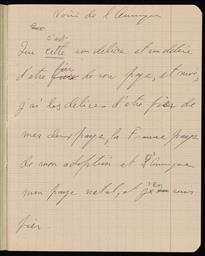 Voix de l'Amérique
c'est
cette un délice, et un délice
d'être fier de son pays, et moi,
j'ai les délices d'être fier de
mes deux pays, la France pays
de mon adoption et l'Amérique
mon pays natal, et j'en suis
fier